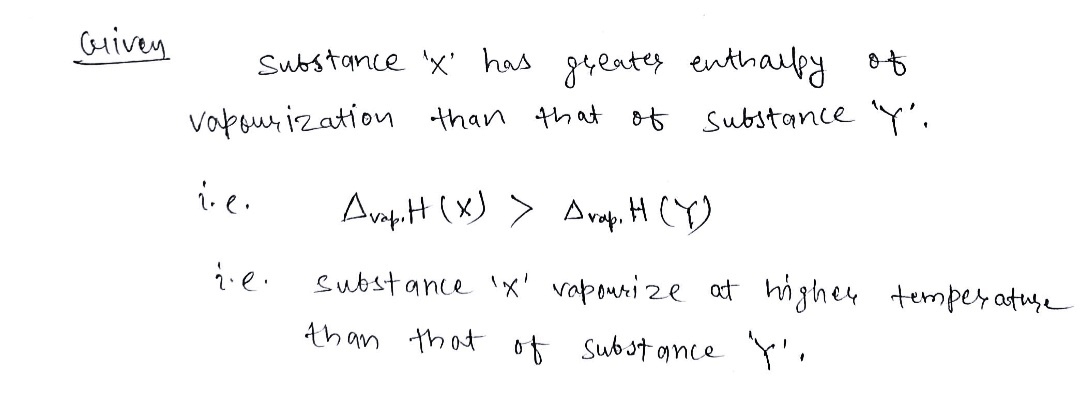 Given
Substance 'X' has greater enthalpy of
vapourization than that of substance 'Y'.
i.e. Δvap.H (X) > Δvap.H (Y)
i.e. substance 'X' vapourize at higher temperature
than that of substance 'Y'.